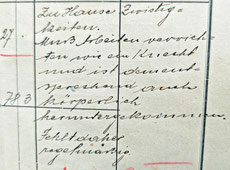 Zu Hause Zwistig-
keiten.
27. Muß Arbeiten verrich-
ten wie ein Knecht
und ist dement-
sprechend auch
78.3 körperlich
heruntergekommen.
Fehlt daher
regelmäßig